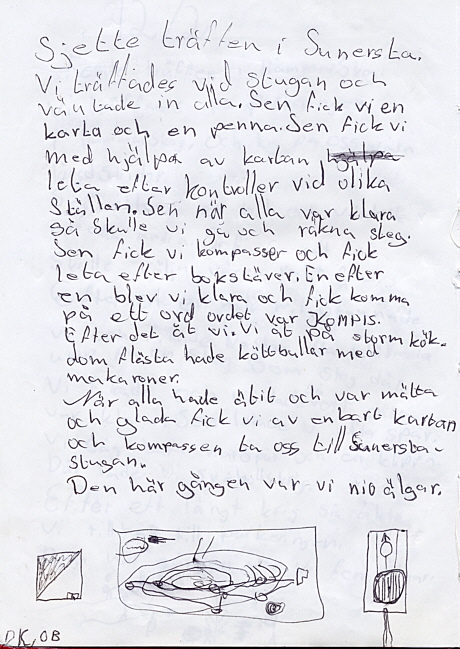 Sjette träffen i Sunersta.
Vi träffades vid stugan och
väntade in alla. Sen fick vi en
karta och en penna. Sen fick vi
med hjälpa av kartan
leta efter kontroller vid olika
ställen. Sen när alla var klara
så skulle vi gå och räkna steg.
Sen fick vi kompasser och fick
leta efter bokstäver. En efter
en blev vi klara och fick komma
på ett ord ordet var KOMPIS.
Efter det åt vi. Vi åt på stormkök.
dom flästa hade köttbullar med
makaroner.
När alla hade ätit och var mätta
och glada fick vi av enbart kartan
och kompassen ta oss till Sunersta-
stugan.
Den här gången var vi nio älgar.
DK, OB